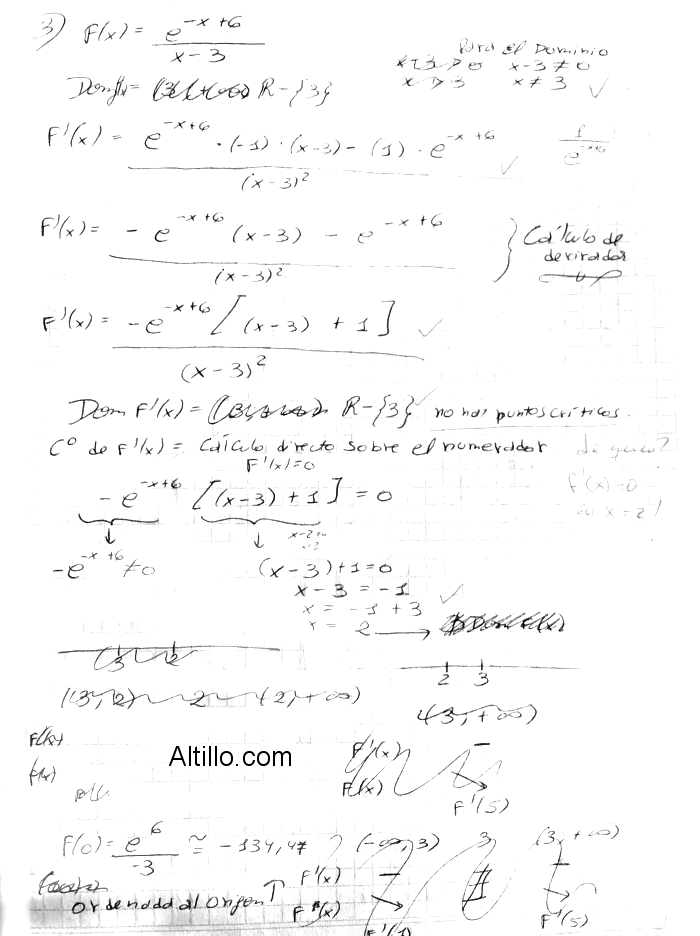 3) F(x) = e^(-x+6) / (x-3)
Para el Dominio
x-3 > 0 x-3 ≠ 0
x > 3 x ≠ 3 ✓
Domf = R-{3}
F'(x) = e^(-x+6) · (-1) · (x-3) - (1) · e^(-x+6) / (x-3)² ✓ 1 / e^(-x+6)
F'(x) = - e^(-x+6) (x-3) - e^(-x+6) / (x-3)² } Cálculo de
derivador
F'(x) = -e^(-x+6) [(x-3) + 1] / (x-3)² ✓
Dom F'(x) = R-{3} ✓ no hay puntos críticos.
C⁰ de F'(x) = Cálculo directo sobre el numerador de quien?
F'(x)=0
-e^(-x+6) [(x-3)+1] = 0
f'(x)=0
en x=2!
↓ ↓
-e^(-x+6) ≠ 0 (x-3)+1=0
x-3 = -1 ✓
x = -1+3
x = 2 →
3 2
2 3
(3, 2) 2 (2, +∞)
(3, +∞)
F'(x)
f(x)
Altillo.com
F'(x) -
F(x) ↘
F'(5)
F(0) = e^6 / -3 ≅ -134,47
(-∞, 3) 3 (3, +∞)
F'(x) - ∄ -
F(x) ↘ ↘
Ordenada al Origen ↑
F'(1) F'(5)